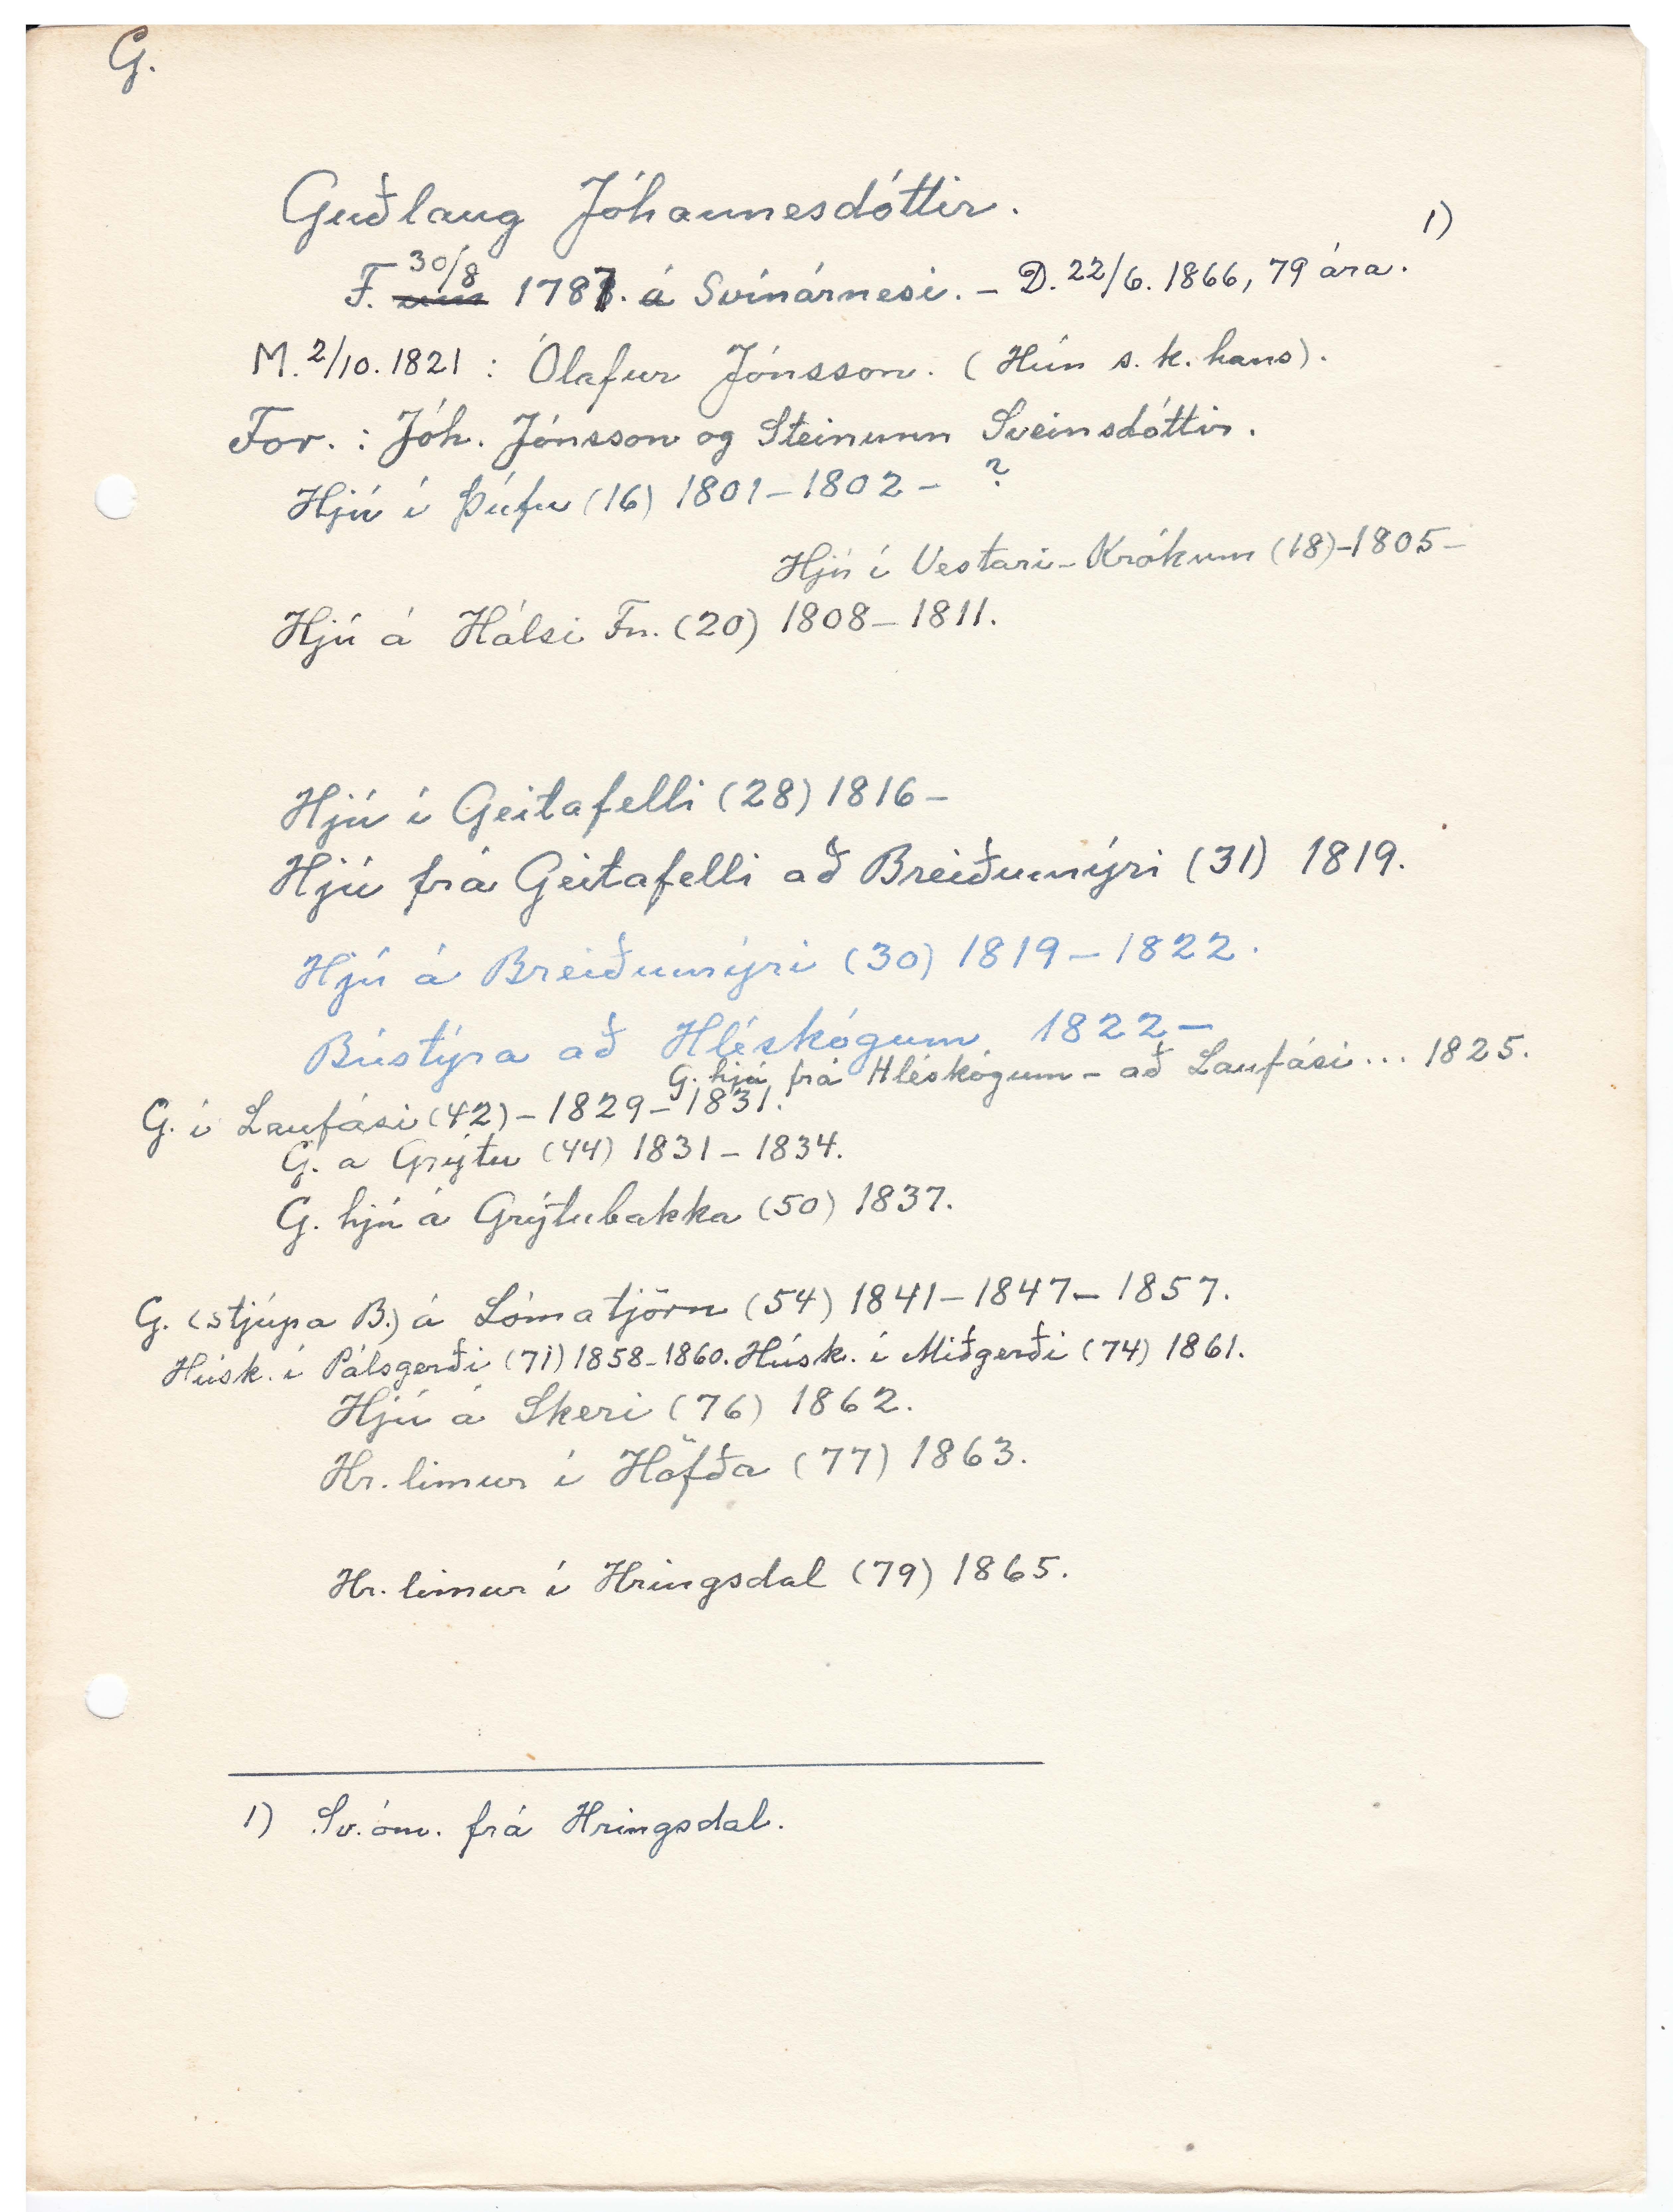 G.
Guðlaug Jóhannesdóttir.
1)
F. 30/8 1787. á Svínárnesi. – D. 22/6. 1866, 79 ára.
M. 2/10. 1821 : Ólafur Jónsson. (Hún s. k. hans).
For. : Jóh. Jónsson og Steinunn Sveinsdóttir.
Hjú í Þúfu (16) 1801–1802– ?
Hjú í Vestari-Krókum (18)–1805–
Hjú á Hálsi Fn. (20) 1808–1811.
Hjú í Geitafelli (28) 1816–
Hjú frá Geitafelli að Breiðumýri (31) 1819.
Hjú á Breiðumýri (30) 1819–1822.
Bústýra að Hléskógum 1822–
G. hjú frá Hléskógum – að Laufási ... 1825.
G. í Laufási (42) – 1829–1831.
G. a Grýtu (44) 1831–1834.
G. hjú á Grýtubakka (50) 1837.
G. (stjúpa B.) á Lómatjörn (54) 1841–1847–1857.
Húsk. í Pálsgerði (71) 1858–1860. Húsk. í Miðgerði (74) 1861.
Hjú á Skeri (76) 1862.
Hr. limur í Höfða (77) 1863.
Hr. limur í Hringsdal (79) 1865.
1) Sv. óm. frá Hringsdal.